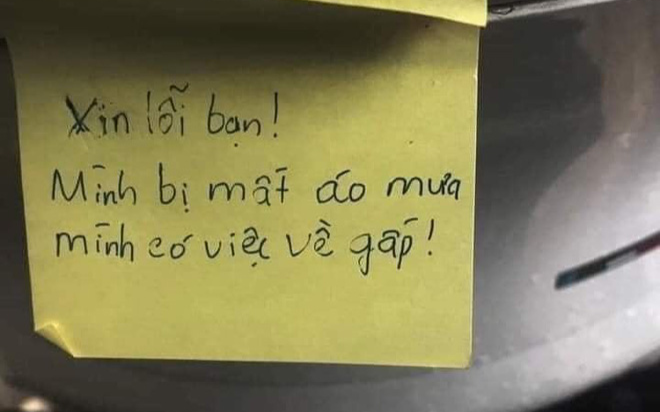 Xin lỗi bạn!
Mình bị mất áo mưa
mình có việc về gấp!